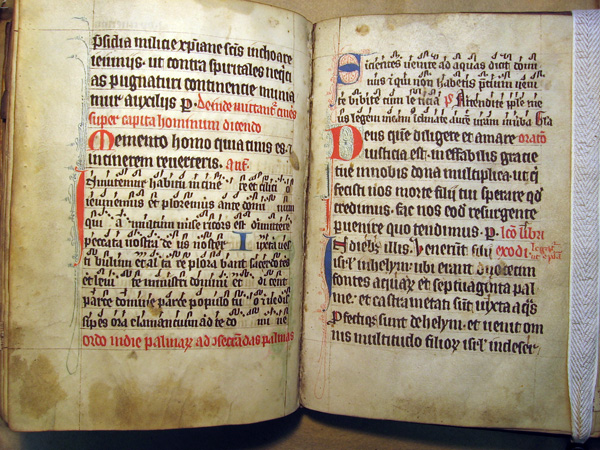 psidia milicie xp̄iane scīs inchoare
ieiunijs. ut contra spiritales neqͥci
as pugnaturi continencie munia
mur auxilijs P. Deinde mittant᷑ cīnes
super capita hominum dicendo
Memento homo quia cinis es. ⁊
in cinerem reuerteris. Añ.
Inmutemur habitu in cine re et cilici
ieiunemus et ploremus ante domi num
qui a multum mise ricors est dimittere
peccata nostra de us noster Iuxta ues
ti bulum et al ta re plora bant sacerdotes
et leui te ministri domini et di cent
parce domine parce populo tu o ⁊ ne di
sipes ora clamancium ad te do mi ne
ordo in die palmaꝝ ad ꝯsecrandas palmas
Sicientes uenite ad aquas dicit domi
nus ⁊ qui non habetis p̄cium ueni
te bibite cum le ticia P Attendite
legem meam
Deus quē diligere et amare oratō
iusticia est. ineffabilis gracie
tue in nobis dona multiplica. ut qͥ
fecisti nos morte filij tui sperare qd̄
credimus. fac nos eod̄ resurgente
puenire quo tendimus. P. lc̄o libri
In dieb᷒ illis. Venerūt filij exodi.
isrl̓ in helym. ubi erant duodecim
fontes aquaꝝ et septuaginta pal
me. et castra metati sūt iuxta aqͣs
Profectiqꝫ sunt de helym. et uenit om
nis multitudo filioꝝ isrl̓ in deser